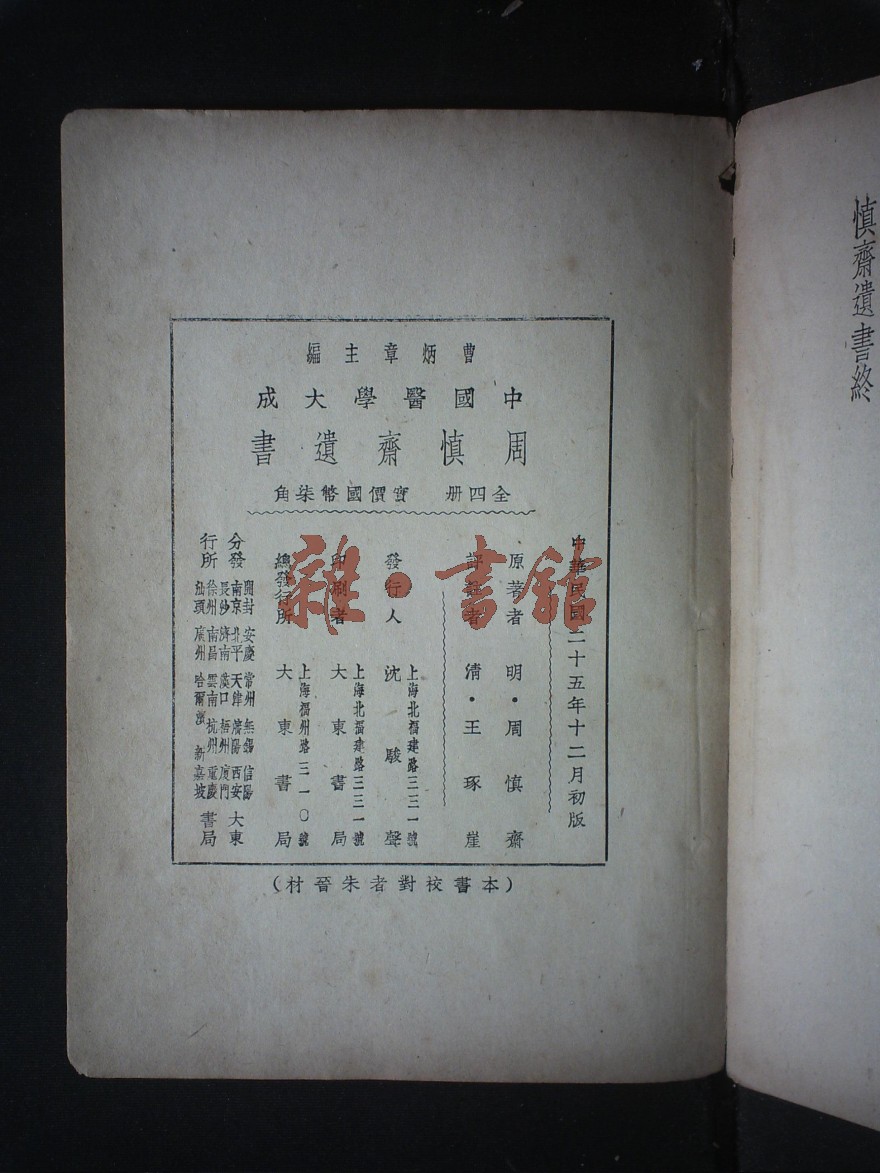 慎齋遺書終
曹炳章主編
中國醫學大成
周慎齋遺書
全四册 實價國幣柒角
中華民國二十五年十二月初版
原著者 明・周慎齋
評註者 清・王琢崖
發行人 沈駿聲
上海北福建路三三一號
印刷者 大東書局
上海北福建路三三一號
總發行所 大東書局
上海福州路三一〇號
分發行所
開封 安慶 常州 無錫 信陽
南京 北平 天錐 瀋陽 西安
長沙 濟南 漢口 梧州 廈門
徐州 南昌 雲南 杭州 重慶
汕頭 廣州 哈爾濱 新嘉坡
大東書局
(本書校對者朱晉材)
雜・書館